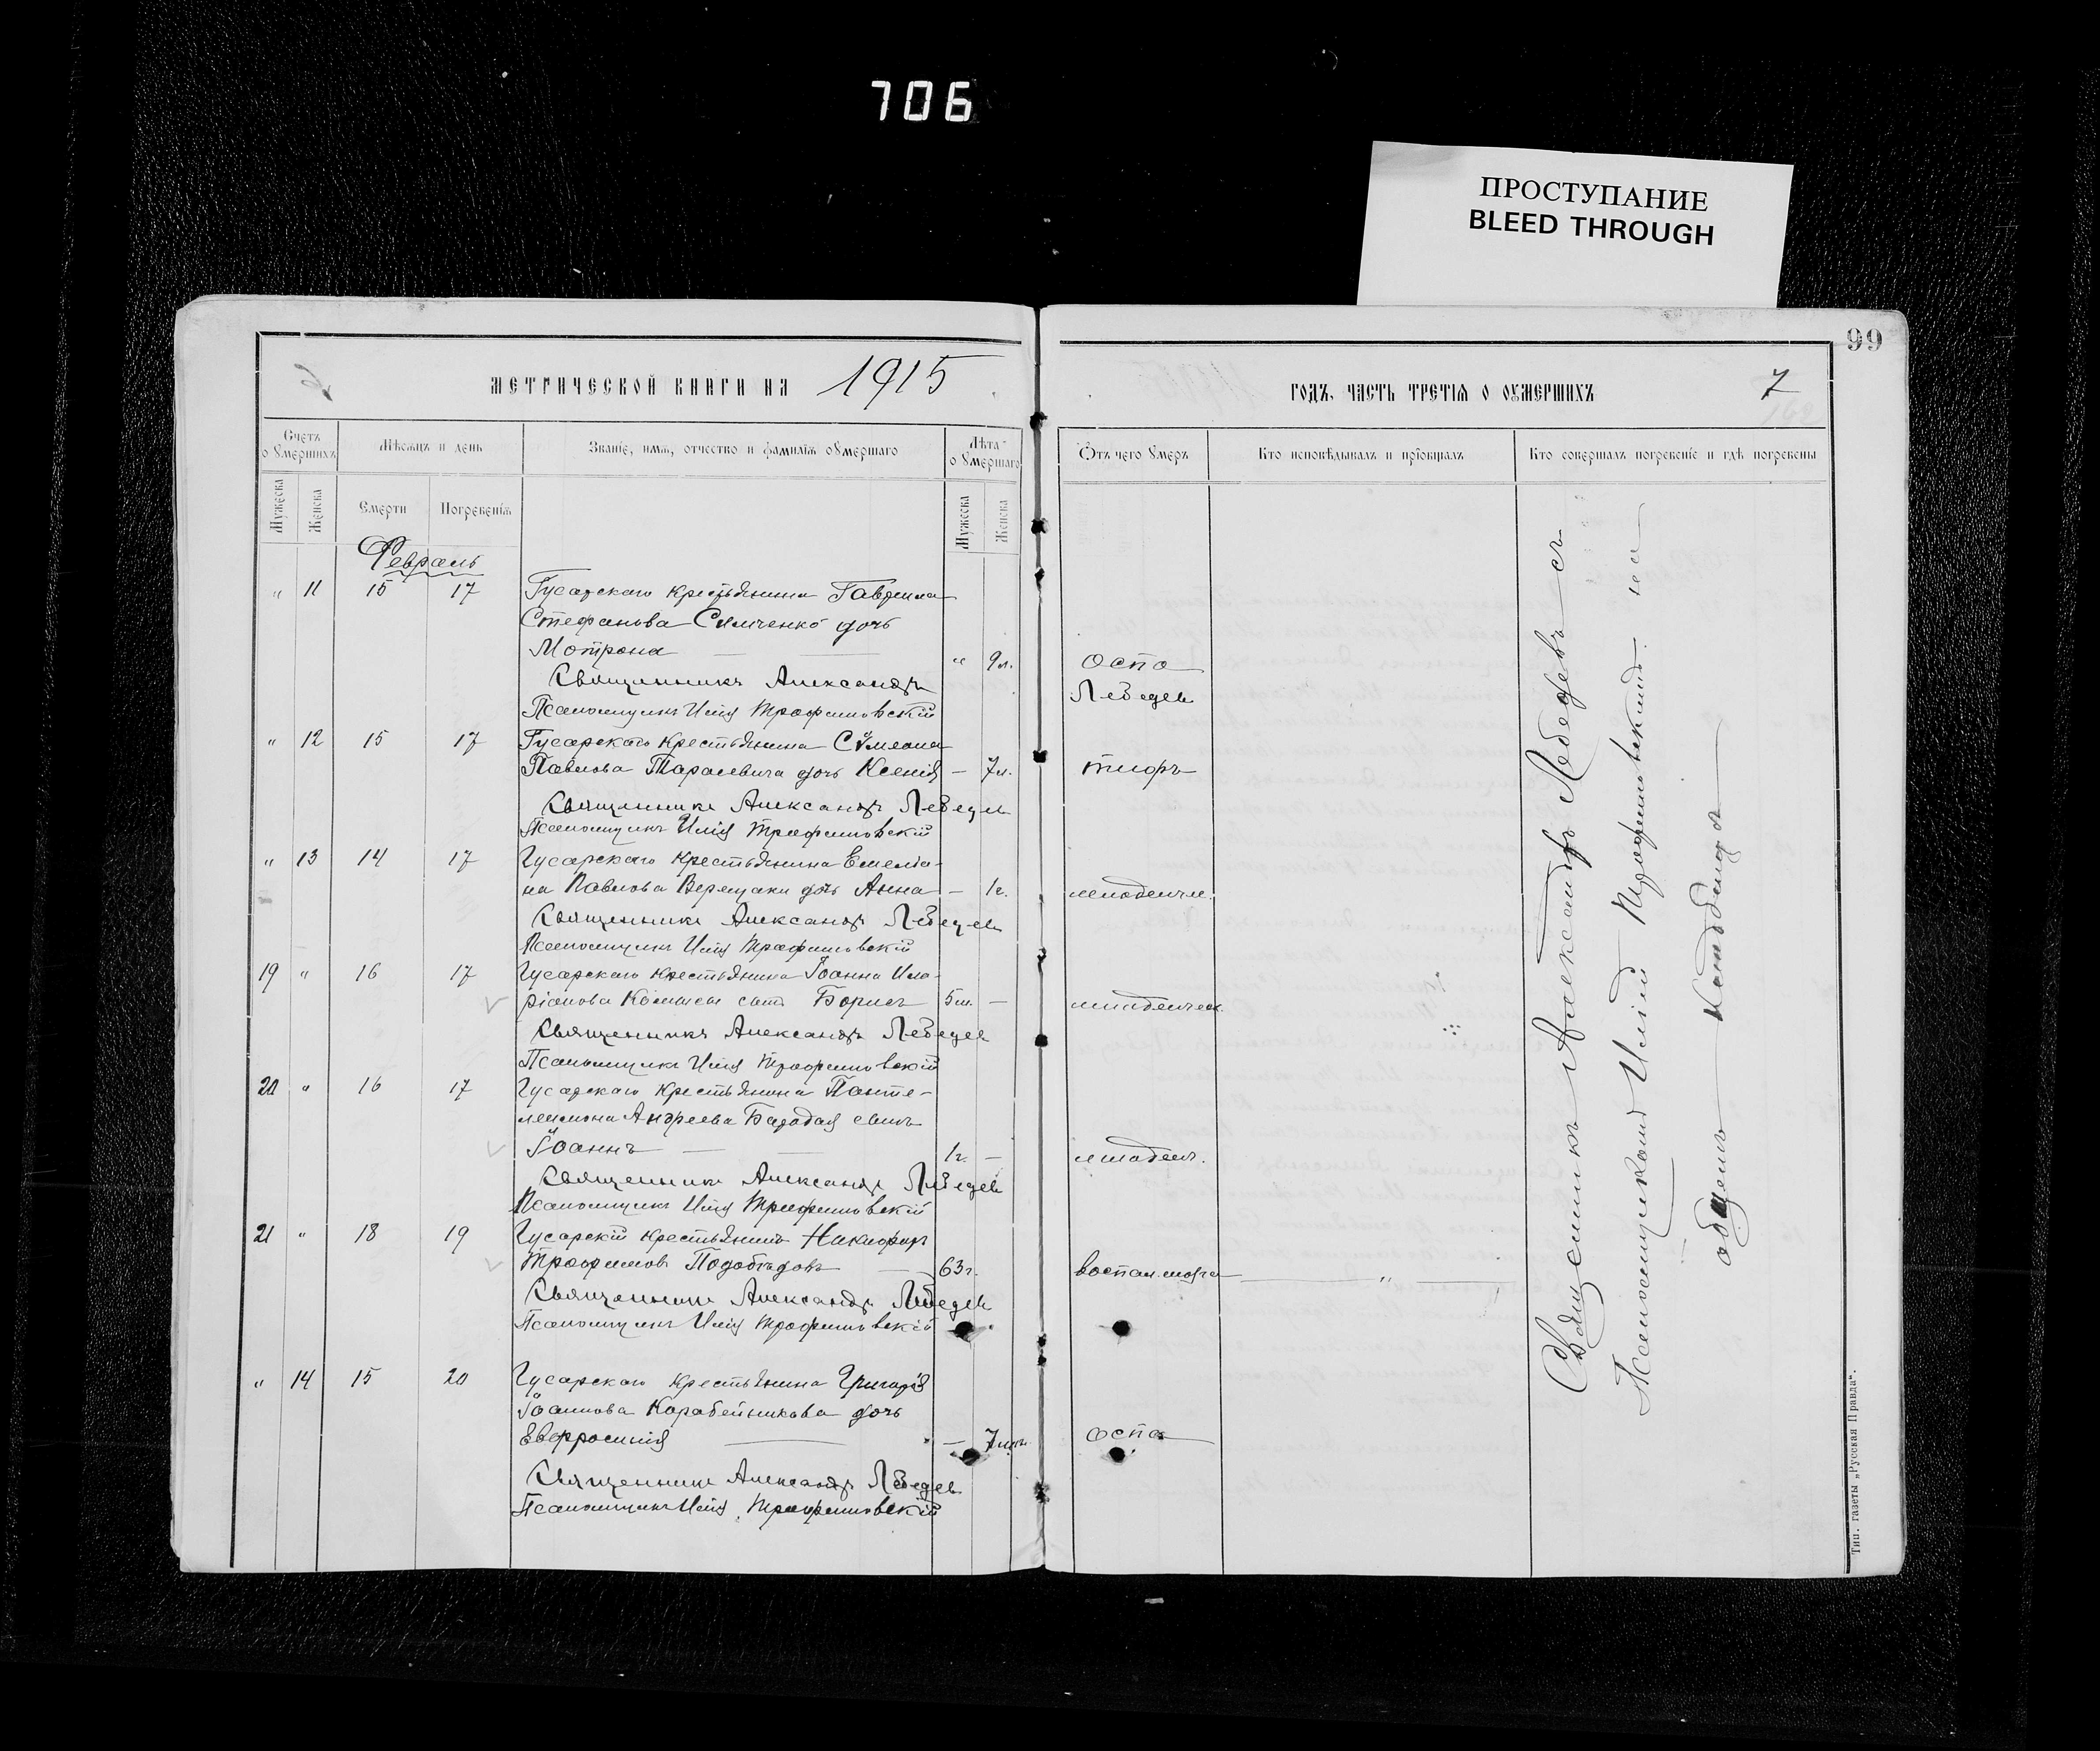 706
ПРОСТУПАНИЕ
BLEED THROUGH
99
метрической книги на 1915
годъ, часть третія о оумершихъ
7
Счетъ оумершихъ
Мѣсяцъ и день
Званіе, имя, отчество и фамилія оумершаго
Лѣта оумершаго
Отъ чего умеръ
Кто исповѣдывалъ и пріобщалъ
Кто совершалъ погребеніе и гдѣ погребены
Мужеска
Женска
Смерти
Погребенія
Мужеска
Женска
Февраль
" 11 15 17 Гусарскаго крестьянина Гавриила
Стефанова Симченко дочь
Мотрона " 9 л. оспа
Священникъ Александръ Лебедев
Псаломщикъ Илія Трофимовскій
" 12 15 17 Гусарскаго крестьянина Сѵмеона
Павлова Тарасевича дочь Ксенія – 7 л. тифъ
Священникъ Александръ Лебедев
Псаломщикъ Илія Трофимовскій
" 13 14 17 Гусарскаго крестьянина Емелiа-
на Павлова дочь Анна – 1 г. младенч.
Священникъ Александръ Лебедев
Псаломщикъ Илія Трофимовскій
19 " 16 17 Гусарскаго крестьянина Іоанна Ила-
ріонова сынъ Борисъ 5 м. – младенческ.
Священникъ Александръ Лебедев
Псаломщикъ Илія Трофимовскій
20 " 16 17 Гусарскаго крестьянина Панте-
леимона Андреева Бородая сынъ
Іоаннъ 1 г. – младен.
Священникъ Александръ Лебедев
Псаломщикъ Илія Трофимовскій
21 " 18 19 Гусарскій крестьянинъ Никифоръ
Трофимовъ Подобѣдовъ 63 г. воспал. мозга "
Священникъ Александръ Лебедев
Псаломщикъ Илія Трофимовскій
" 14 15 20 Гусарскаго крестьянина Григорія
Іоаннова Коробейникова дочь
Евфросинія – 7 оспа
Священникъ Александръ Лебедев
Псаломщикъ Илія Трофимовскій
Священникъ Александръ Лебедевъ съ
Псаломщикомъ Иліей Трофимовскимъ на
общемъ кладбищѣ
Тип. газеты „Русская Правда“.